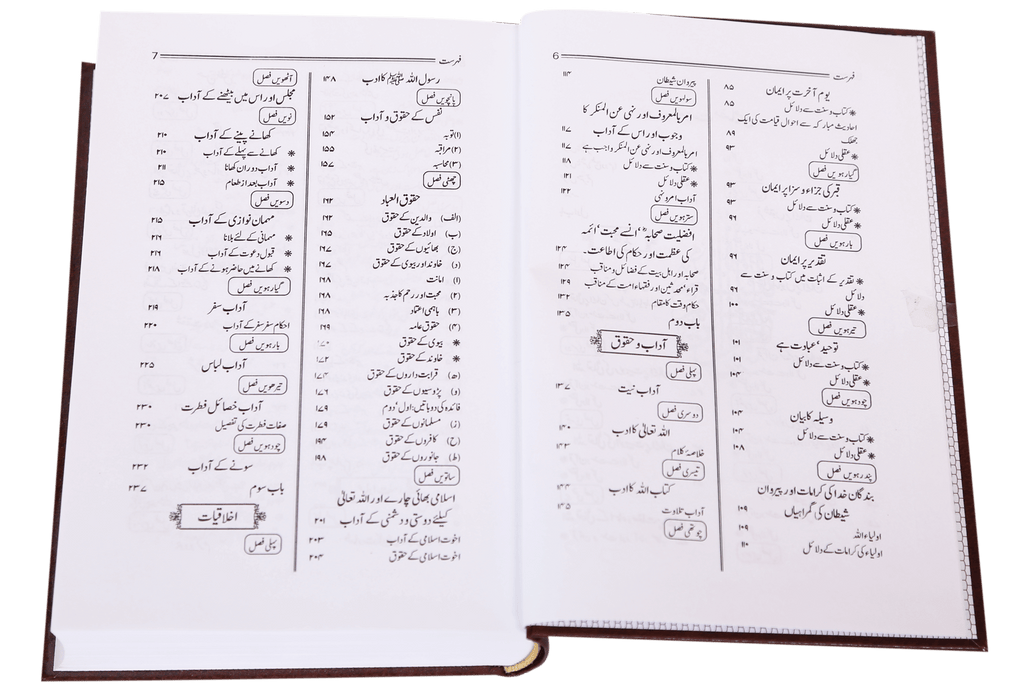 6
فہرست
یوم آخرت پر ایمان ۸۵
✳ کتاب و سنت سے دلائل ۸۵
احادیث مبارکہ سے احوال قیامت کی ایک
جھلک ۸۹
✳ عقلی دلائل ۹۳
گیارہویں فصل
قبر کی جزاء و سزا پر ایمان ۹۳
✳ کتاب و سنت سے دلائل ۹۳
✳ عقلی دلائل ۹۶
بارہویں فصل
تقدیر پر ایمان ۹۶
✳ تقدیر کے اثبات میں کتاب و سنت سے
دلائل ۹۶
✳ عقلی دلائل ۱۰۰
تیرہویں فصل
توحید ٔ عبادت ہے ۱۰۱
✳ کتاب و سنت سے دلائل ۱۰۱
✳ عقلی دلائل ۱۰۴
چودہویں فصل
وسیلہ کا بیان ۱۰۴
✳ کتاب و سنت سے دلائل ۱۰۴
✳ عقلی دلائل ۱۰۸
پندرہویں فصل
بندگان خدا کی کرامات اور پیروان
شیطان کی گمراہیاں ۱۰۹
اولیاء اللہ ۱۰۹
اولیاء کی کرامات کے دلائل ۱۱۰
پیروان شیطان ۱۱۴
سولہویں فصل
امر بالمعروف اور نہی عن المنکر کا
وجوب اور اس کے آداب ۱۱۷
امر بالمعروف اور نہی عن المنکر واجب ہے ۱۱۷
✳ کتاب و سنت سے دلائل ۱۱۸
✳ عقلی دلائل ۱۲۱
آداب امر و نہی ۱۲۲
سترہویں فصل
افضلیت صحابہؓ ' انسے محبت ' ائمہ
کی عظمت اور حکام کی اطاعت۔ ۱۲۴
صحابہ اور اہل بیت کے فضائل و مناقب ۱۲۴
قراء ' محدثین اور فقہاء امت کے مناقب ۱۲۹
حکام وقت کا مقام ۱۳۲
باب دوم ۱۳۵
آداب و حقوق
پہلی فصل
آداب نیت ۱۳۷
دوسری فصل
اللہ تعالیٰ کا ادب ۱۴۰
خلاصۂ کلام ۱۴۳
تیسری فصل
کتاب اللہ کا ادب ۱۴۴
آداب تلاوت ۱۴۵
چوتھی فصل
7
فہرست
رسول اللہ ﷺ کا ادب ۱۴۸
پانچویں فصل
نفس کے حقوق و آداب ۱۵۲
(۱) توبہ ۱۵۴
(۲) مراقبہ ۱۵۵
(۳) محاسبہ ۱۵۷
چھٹی فصل
حقوق العباد ۱۶۲
(الف) والدین کے حقوق ۱۶۲
(ب) اولاد کے حقوق ۱۶۵
(ج) بھائیوں کے حقوق ۱۶۷
(د) خاوند اور بیوی کے حقوق ۱۶۷
(۱) امانت ۱۶۸
(۲) محبت اور رحم کا جذبہ ۱۶۸
(۳) باہمی اعتماد ۱۶۸
(۴) حقوق عامہ ۱۶۹
✳ بیوی کے حقوق ۱۷۰
✳ خاوند کے حقوق ۱۷۲
(ھ) قرابت داروں کے حقوق ۱۷۴
(و) پڑوسیوں کے حقوق ۱۷۶
فائدہ کی دو باتیں: اول ' دوم ۱۷۹
(ز) مسلمانوں کے حقوق ۱۷۹
(ح) کافروں کے حقوق ۱۹۴
(ط) جانوروں کے حقوق ۱۹۸
ساتویں فصل
اسلامی بھائی چارے اور اللہ تعالیٰ
کیلئے دوستی و دشمنی کے آداب ۲۰۱
اخوت اسلامی کے آداب ۲۰۳
اخوت اسلامی کے حقوق ۲۰۴
آٹھویں فصل
مجلس اور اس میں بیٹھنے کے آداب ۲۰۷
نویں فصل
کھانے پینے کے آداب ۲۱۰
✳ کھانے سے پہلے کے آداب ۲۱۰
✳ آداب دوران کھانا ۲۱۱
✳ آداب بعد از طعام ۲۱۵
دسویں فصل
مہمان نوازی کے آداب ۲۱۵
✳ مہمانی کے لئے بلانا ۲۱۶
✳ قبول دعوت کے آداب ۲۱۶
✳ کھانے میں حاضر ہونے کے آداب ۲۱۸
گیارہویں فصل
آداب سفر ۲۱۹
احکام سفر سفر کے آداب ۲۲۰
بارہویں فصل
آداب لباس ۲۲۵
تیرھویں فصل
آداب خصائل فطرت ۲۳۰
صفات فطرت کی تفصیل ۲۳۰
چودہویں فصل
سونے کے آداب ۲۳۲
باب سوم ۲۳۷
اخلاقیات
پہلی فصل